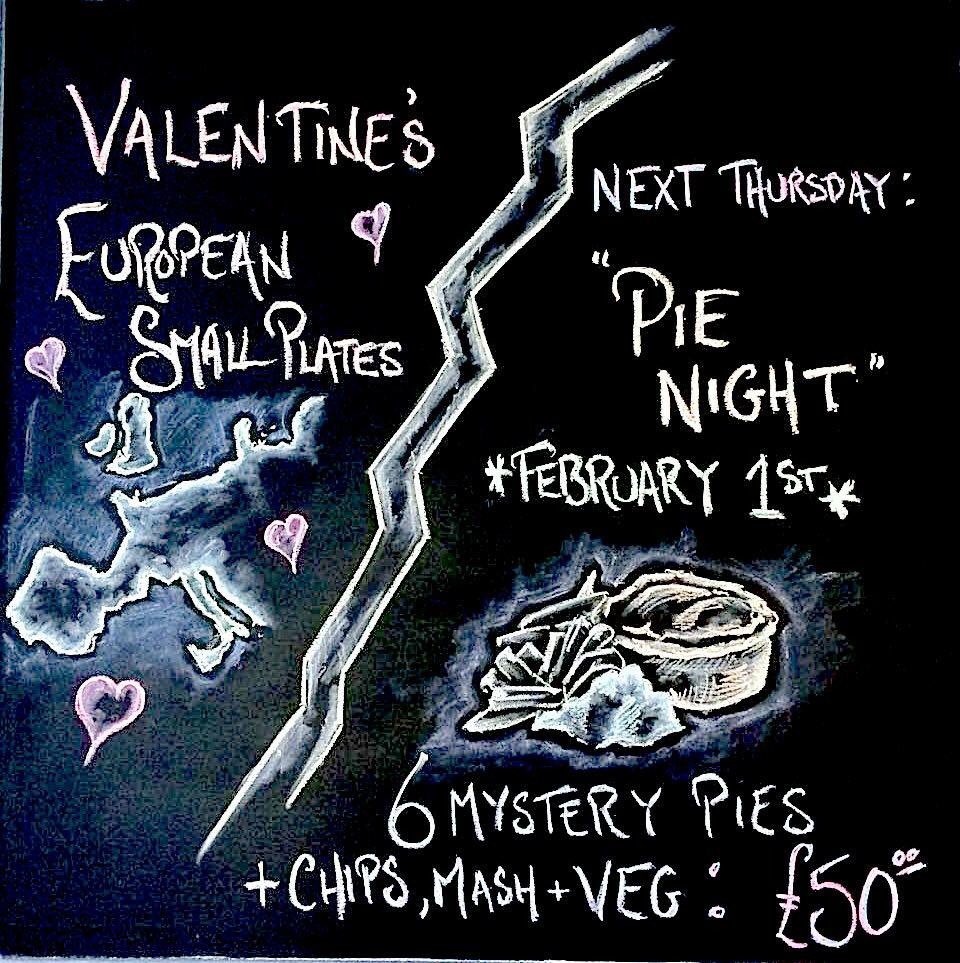 VALENTINE'S
EUROPEAN
SMALL PLATES
NEXT THURSDAY:
"PIE
NIGHT"
*FEBRUARY 1ST*
6 MYSTERY PIES
+ CHIPS, MASH + VEG : £50.00